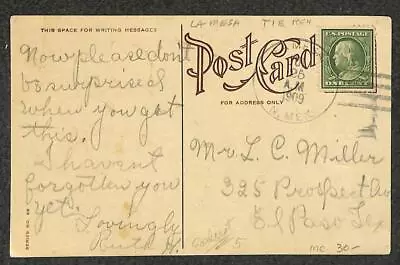 LA MESA TIE MCH
THIS SPACE FOR WRITING MESSAGES
Post Card
FOR ADDRESS ONLY
U.S. POSTAGE
ONE CENT
A M
1909
N. MEX.
Now please don't
be surprised
when you get
this.
I havent
forgotten you
yet.
Lovingly
Ruth H.
Mr L. C. Miller
325 Prospect Ave
El Paso Tex
5
MC 30-
SERIES NO.